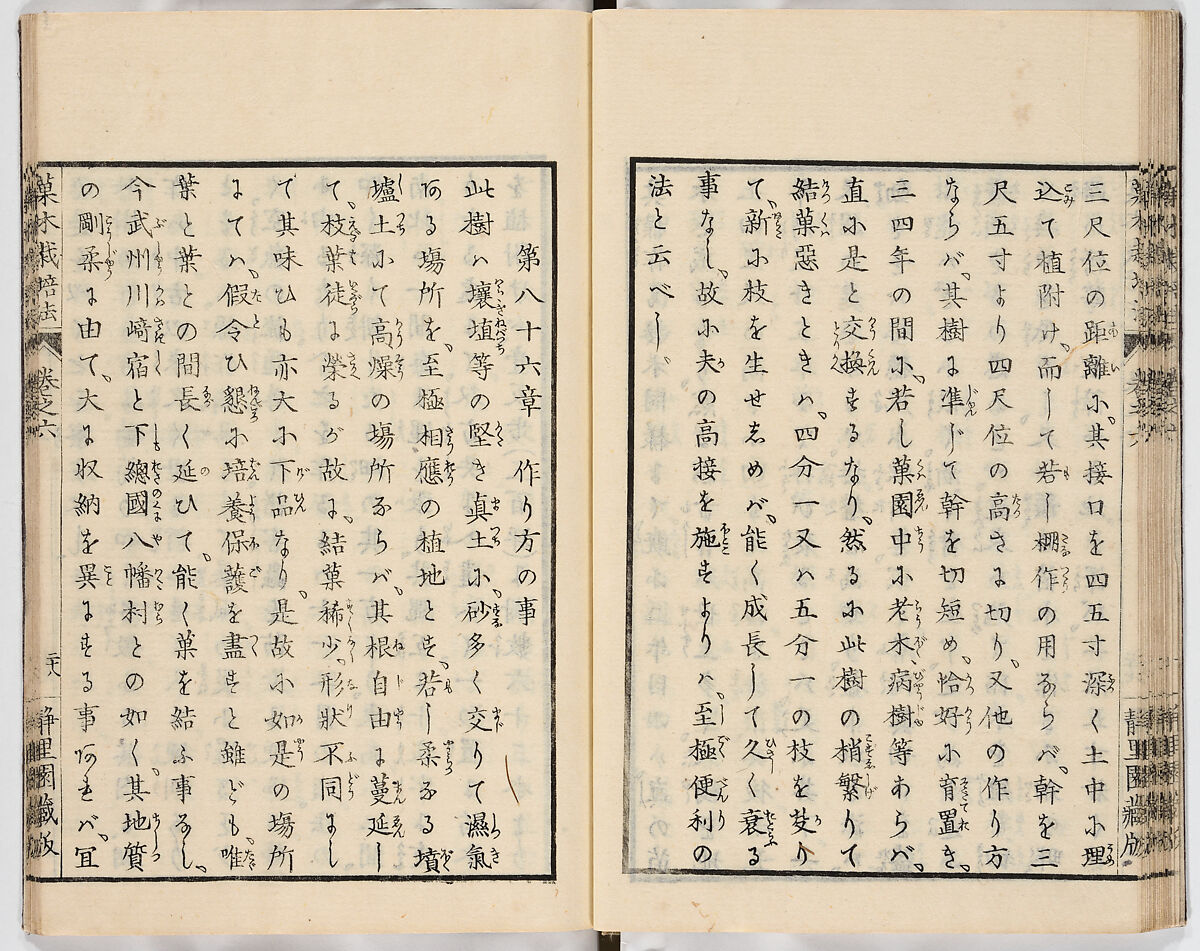 三尺位の距離に、其接口を四五寸深く土中に理
込て植附け、而して若し棚作の用ならバ、幹を三
尺五寸より四尺位の高さに切り、又他の作り方
ならバ、其樹に準じて幹を切短め、恰好に育置き、
三四年の間に、若し菓園中に老木、病樹等あらバ、
直に是と交換するなり、然るに此樹の梢繁りて
結菓惡きときハ、四分一又ハ五分一の枝を芟り
て、新に枝を生せしめバ、能く成長して久く衰る
事なし、故に夫の高接を施すよりハ、至極便利の
法と云べし
第八十六章 作り方の事
此樹ハ壤埴等の堅き真土に、砂多く交りて濕氣
ある塲所を、至極相應の植地とす、若し柔なる墳
壚土にて高燥の塲所ならバ、其根自由に蔓延し
て、枝葉徒に榮るが故に、結菓稀少、形狀不同にし
て其味ひも亦大に下品なり、是故に如是の塲所
にてハ、假令ひ懇に培養保護を盡すと雖ども、唯
葉と葉との間長く延ひて、能く菓を結ふ事なし、
今武州川﨑宿と下總國八幡村との如く、其地質
の剛柔に由て、大に収納を異にする事あれバ、冝
菓木栽培法 卷之六 二十八 静里園藏版
静里園藏版